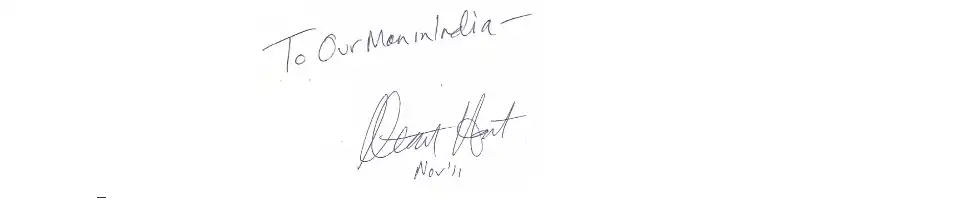 To Our Man in India —
Hart
Nov '11